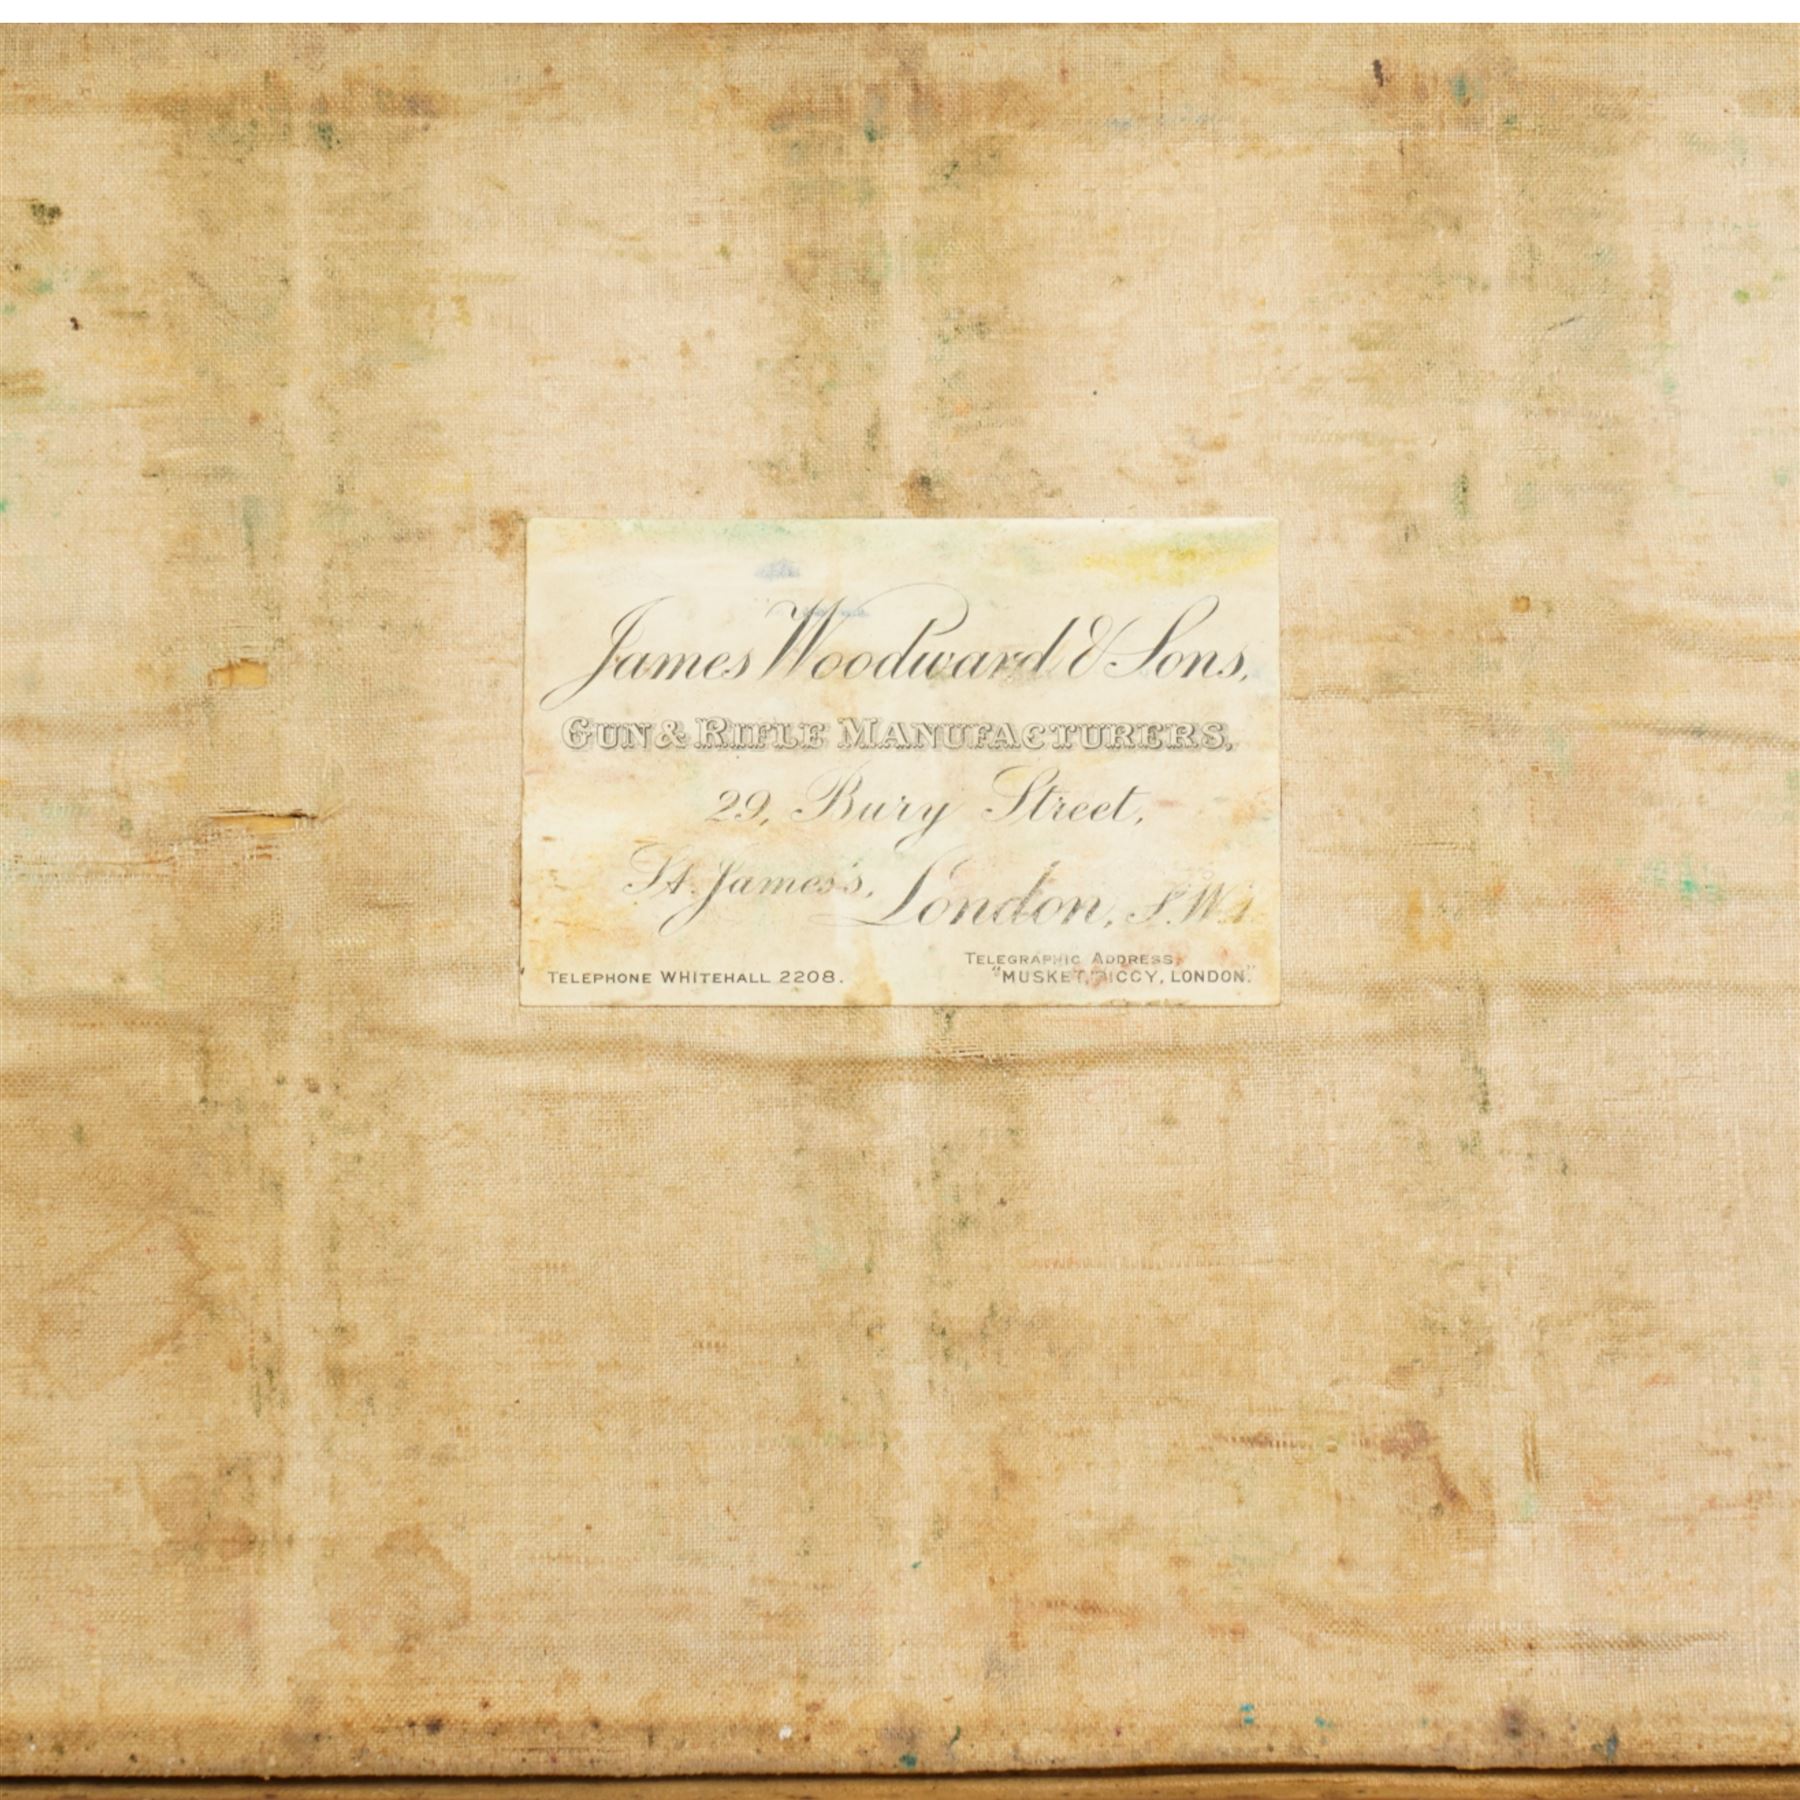 James Woodward & Sons,
GUN & RIFLE MANUFACTURERS,
29, Bury Street,
St. James's, London, S.W.1.
TELEPHONE WHITEHALL 2208.
TELEGRAPHIC ADDRESS,
"MUSKET, PICCY, LONDON."